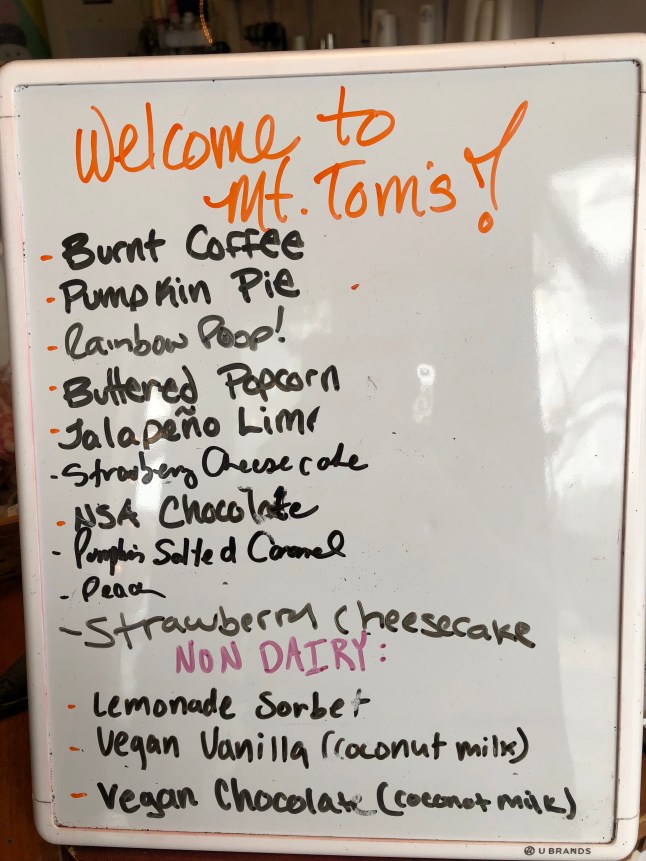 Welcome to
Mt. Tom's!
- Burnt Coffee
- Pumpkin Pie
- Rainbow Poop!
- Buttered Popcorn
- Jalapeño Lime
- Strawberry Cheesecake
- NSA Chocolate
- Pumpkin Salted Caramel
- Peach
- Strawberry Cheesecake
NON DAIRY:
- Lemonade Sorbet
- Vegan Vanilla (coconut milk)
- Vegan Chocolate (coconut milk)
U BRANDS